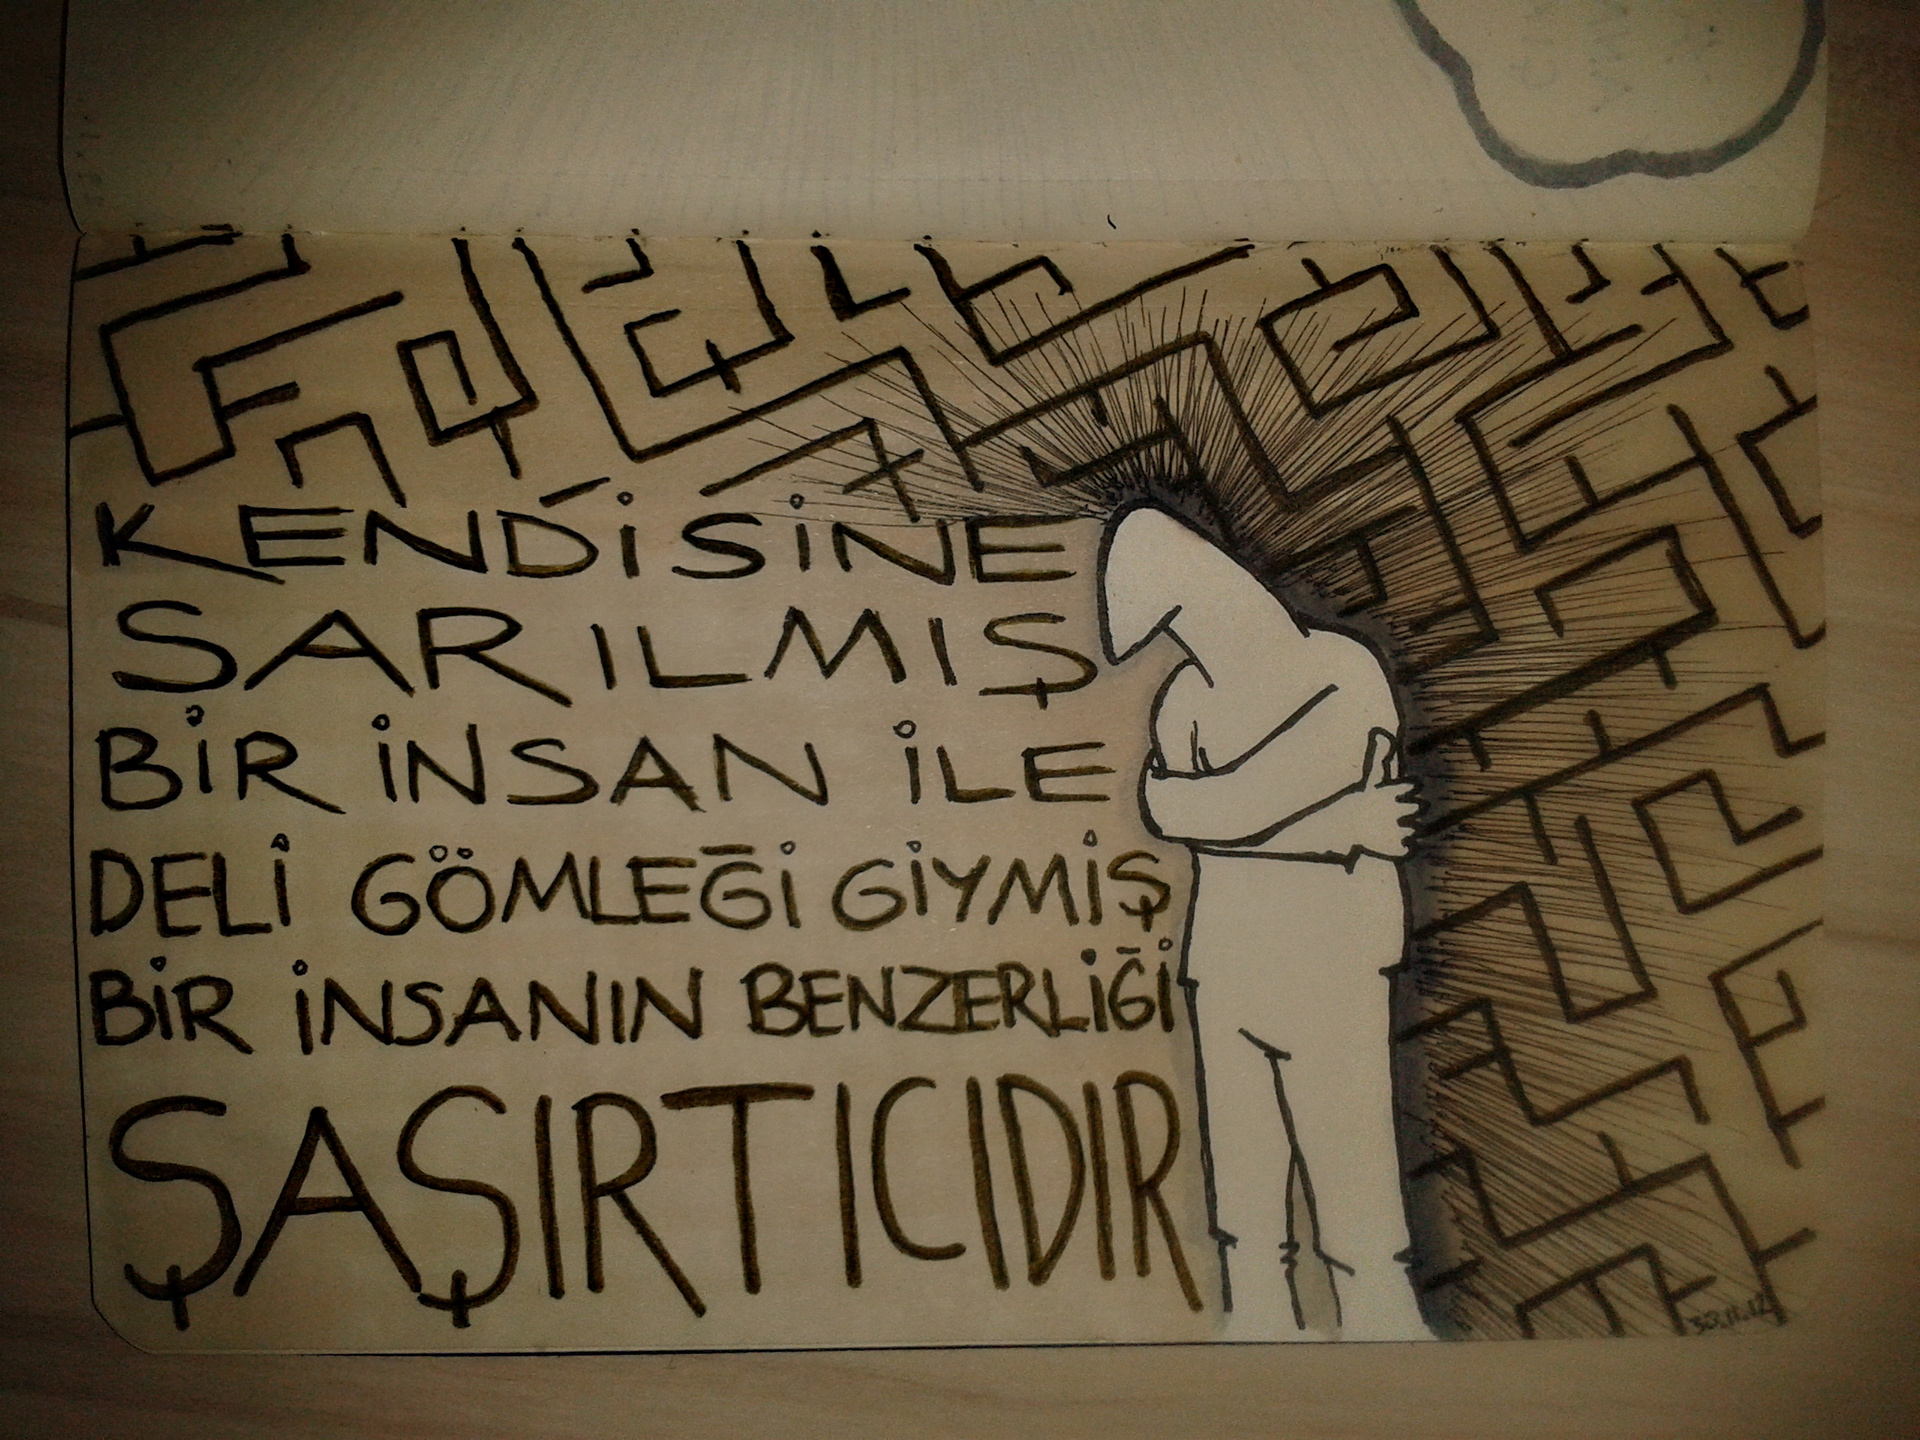 KENDİSİNE
SARILMIŞ
BİR İNSAN İLE
DELİ GÖMLEĞİ GİYMİŞ
BİR İNSANIN BENZERLİĞİ
ŞAŞIRTICIDIR